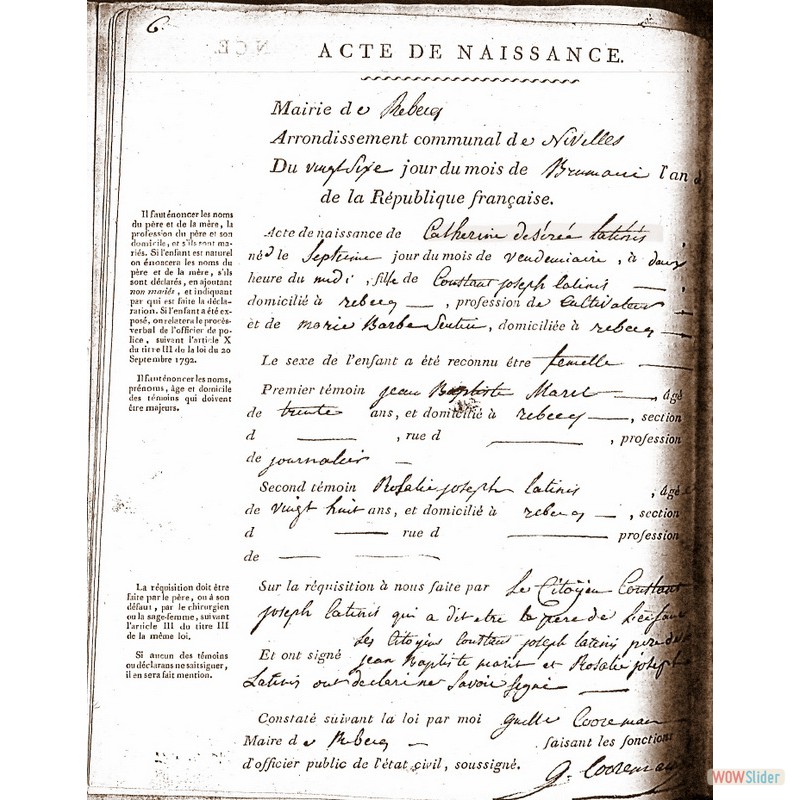 6.
ACTE DE NAISSANCE.
Mairie de Rebecq
Arrondissement communal de Nivelles
Du vingt Sixe jour du mois de Brumaire l'an
de la République française.
Acte de naissance de Catherine desirée latinis
né d le Septieme jour du mois de vendemiaire, à deux
heure du midi, fille de Constant joseph latinis
domicilié à rebecq, profession de Cultivateur
et de marie Barbe, domiciliée à rebecq
Le sexe de l'enfant a été reconnu être femelle
Premier témoin jean Baptiste Maret, âgé
de trente ans, et domicilié à rebecq, section
d , rue d , profession
de journalier
Second témoin Rosalie joseph latinis, âgé
de vingt huit ans, et domicilié à rebecq, section
d rue d profession
de
Sur la réquisition à nous faite par Le Citoyen Constant
joseph latinis qui a dit etre la pere de L'enfant
Les Citoyens Constant joseph latinis pere de
Et ont signé jean Baptiste maret et Rosalie joseph
Latinis ont declaré ne Savoir Signé
Constaté suivant la loi par moi Guille Cooreman
Maire de Rebecq faisant les fonctions
d'officier public de l'état civil, soussigné.
G. Cooreman
Il faut énoncer les noms
du père et de la mère, la
profession du père et son
domicile, et s'ils sont ma-
riés. Si l'enfant est naturel
on énoncera les noms du
père et de la mère, s'ils
sont déclarés, en ajoutant
non mariés, et indiquant
par qui est faite la décla-
ration. Si l'enfant a été ex-
posé, on relatera le procès-
verbal de l'officier de po-
lice, suivant l'article X
du titre III de la loi du 20
Septembre 1792.
Il faut énoncer les noms,
prénoms, âge et domicile
des témoins qui doivent
être majeurs.
La réquisition doit être
faite par le père, ou à son
défaut, par le chirurgien
ou la sage-femme, suivant
l'article III du titre III
de la même loi.
Si aucun des témoins
ou déclarans ne sait signer,
il en sera fait mention.
WOWSlider